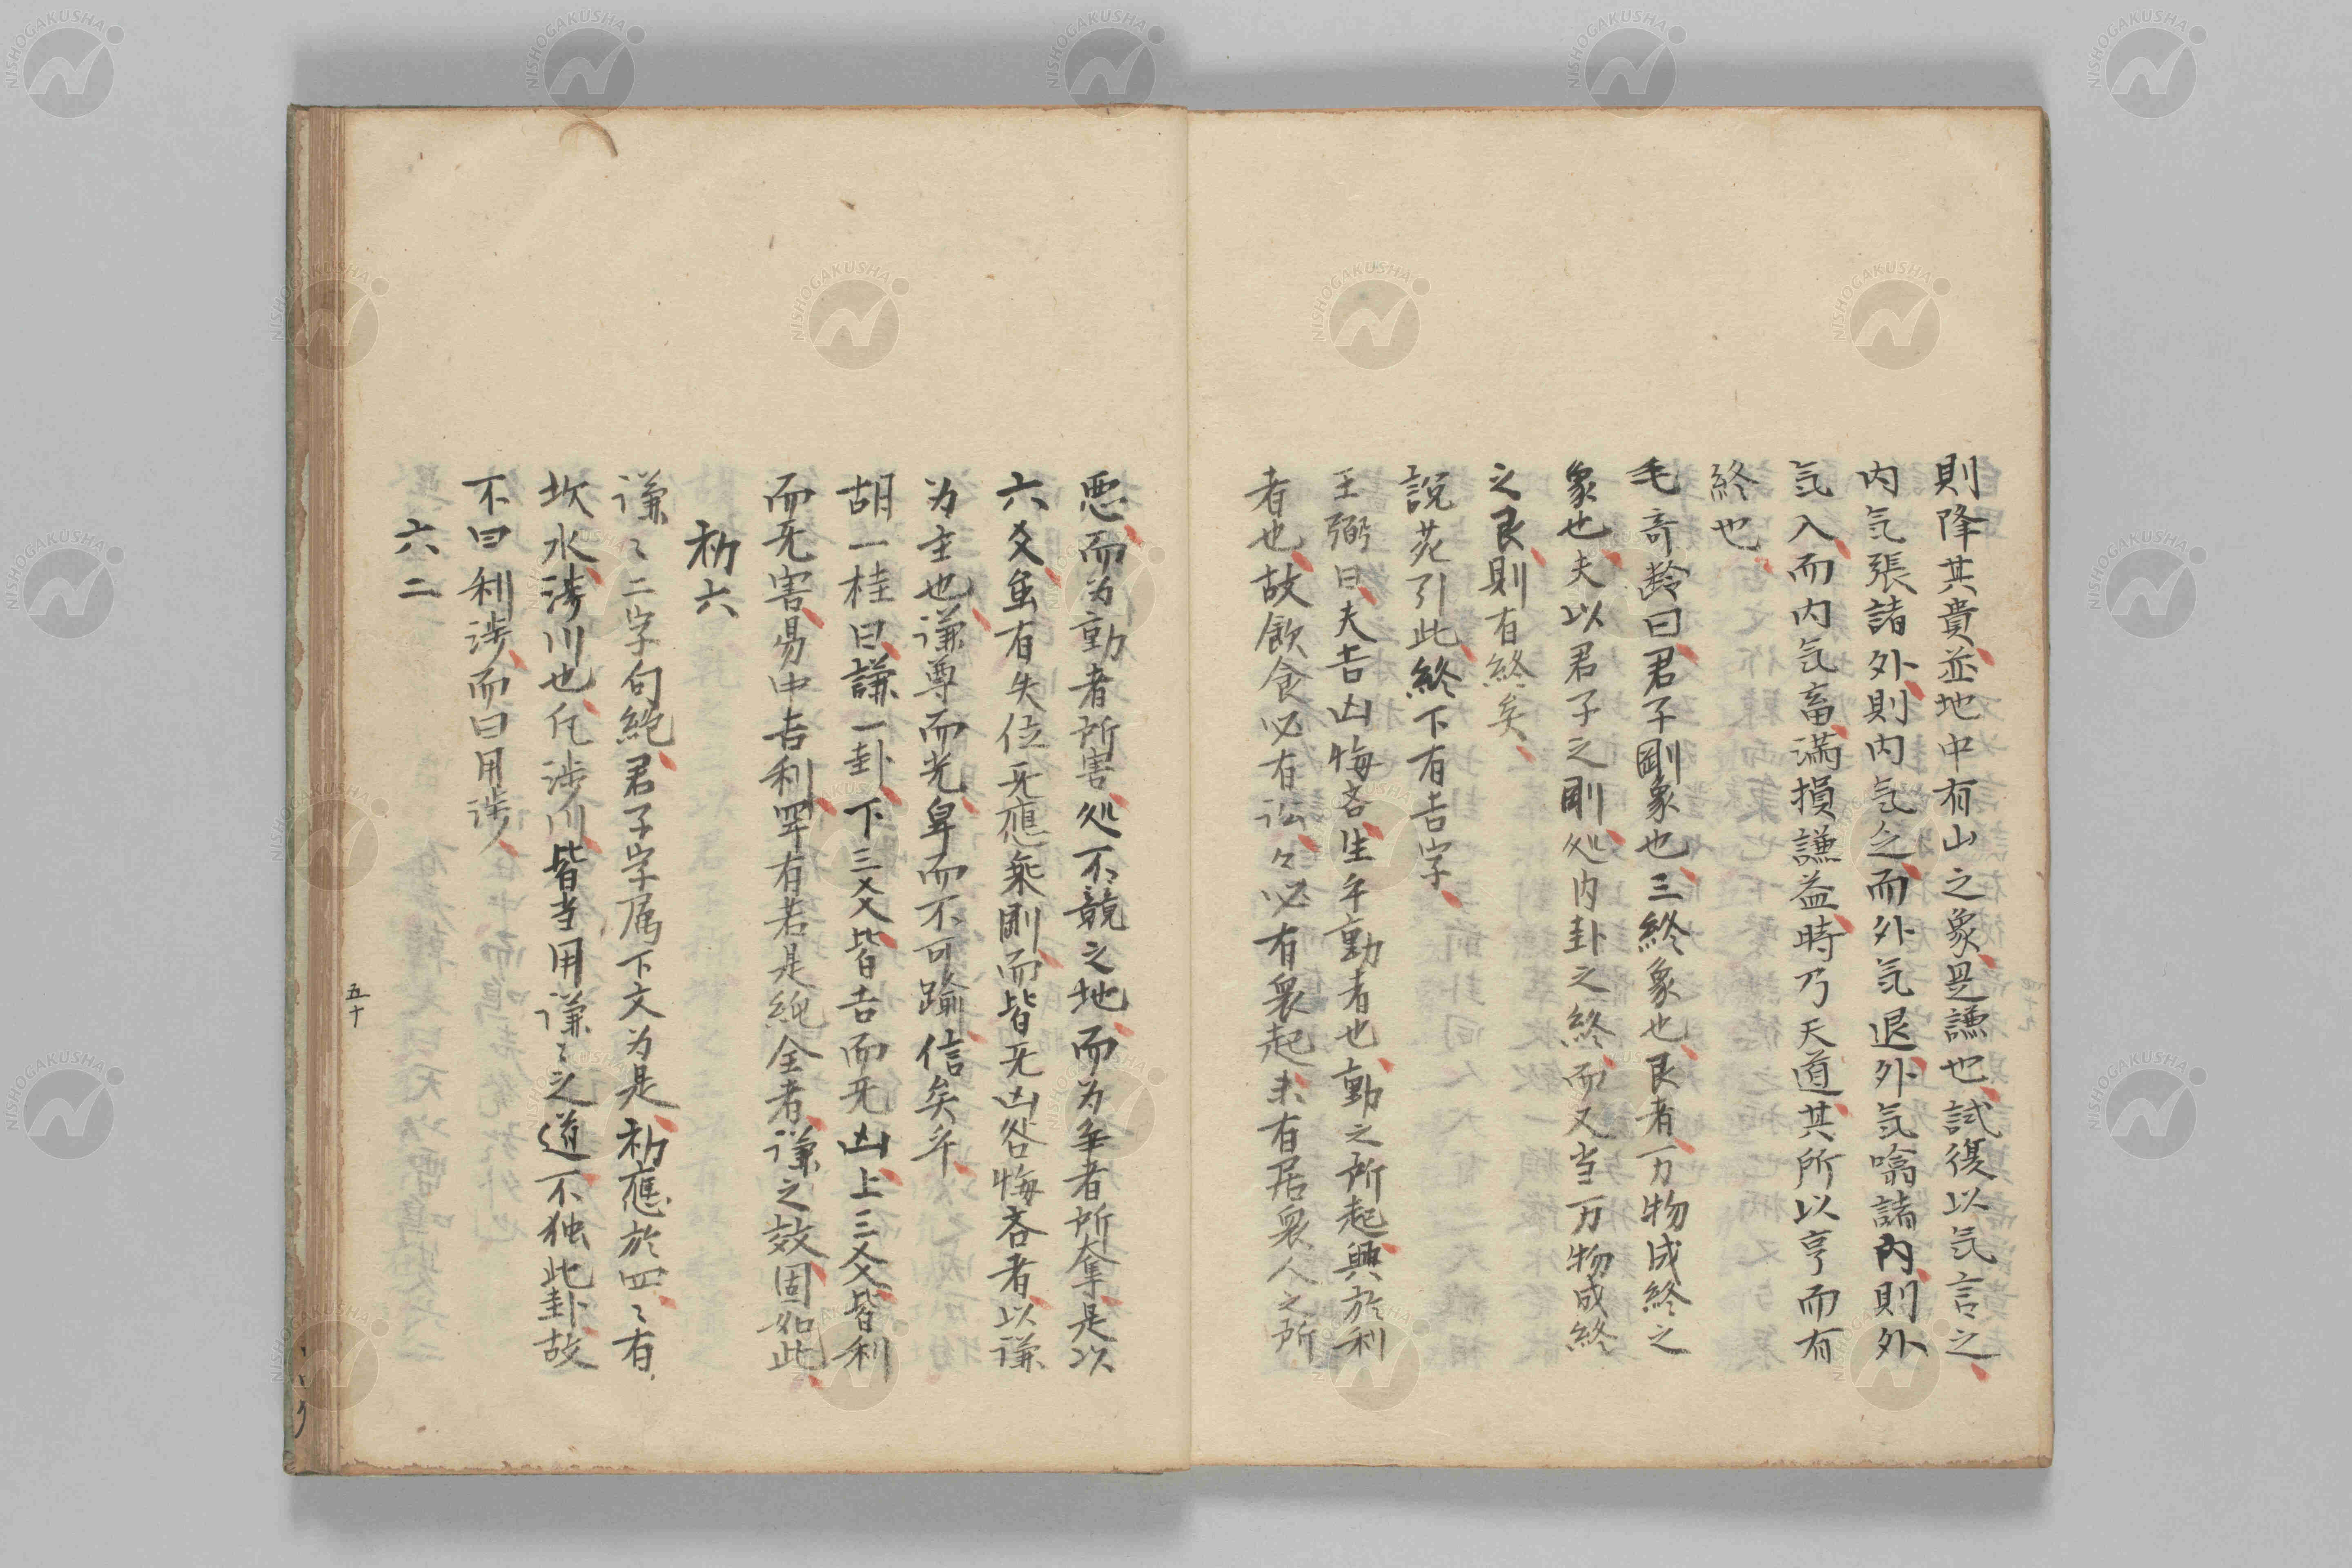 則降其貴並地中有山之象是謙也試復以気言之
内気張諸外則内気乏而外気退外気噏諸内則外
気入而内気畜満損謙益時乃天道其所以亨而有
終也
毛奇齢曰君子剛象也三終象也艮者万物成終之
象也夫以君子之剛処内卦之終而又当万物成終
之艮則有終矣
説苑引此終下有吉字
王弼曰夫吉凶悔吝生乎動者也動之所起興於利
者也故飲食必有訟々必有衆起未有居衆人之所
悪而为動者所害処不競之地而为争者所奪是以
六爻虽有失位旡應乗剛而皆旡凶咎悔吝者以谦
为主也谦尊而光卑而不可踰信矣乎
胡一桂曰謙一卦下三爻皆吉而旡凶上三爻皆利
而旡害易中吉利罕有若是純全者谦之效固如此
初六
谦〻二字句絶君子字属下文为是初應於四〻有
坎水涉川也凡涉川皆当用谦〻之道不独此卦故
不曰利涉而曰用涉
六二
五十
NISHOGAKUSHA